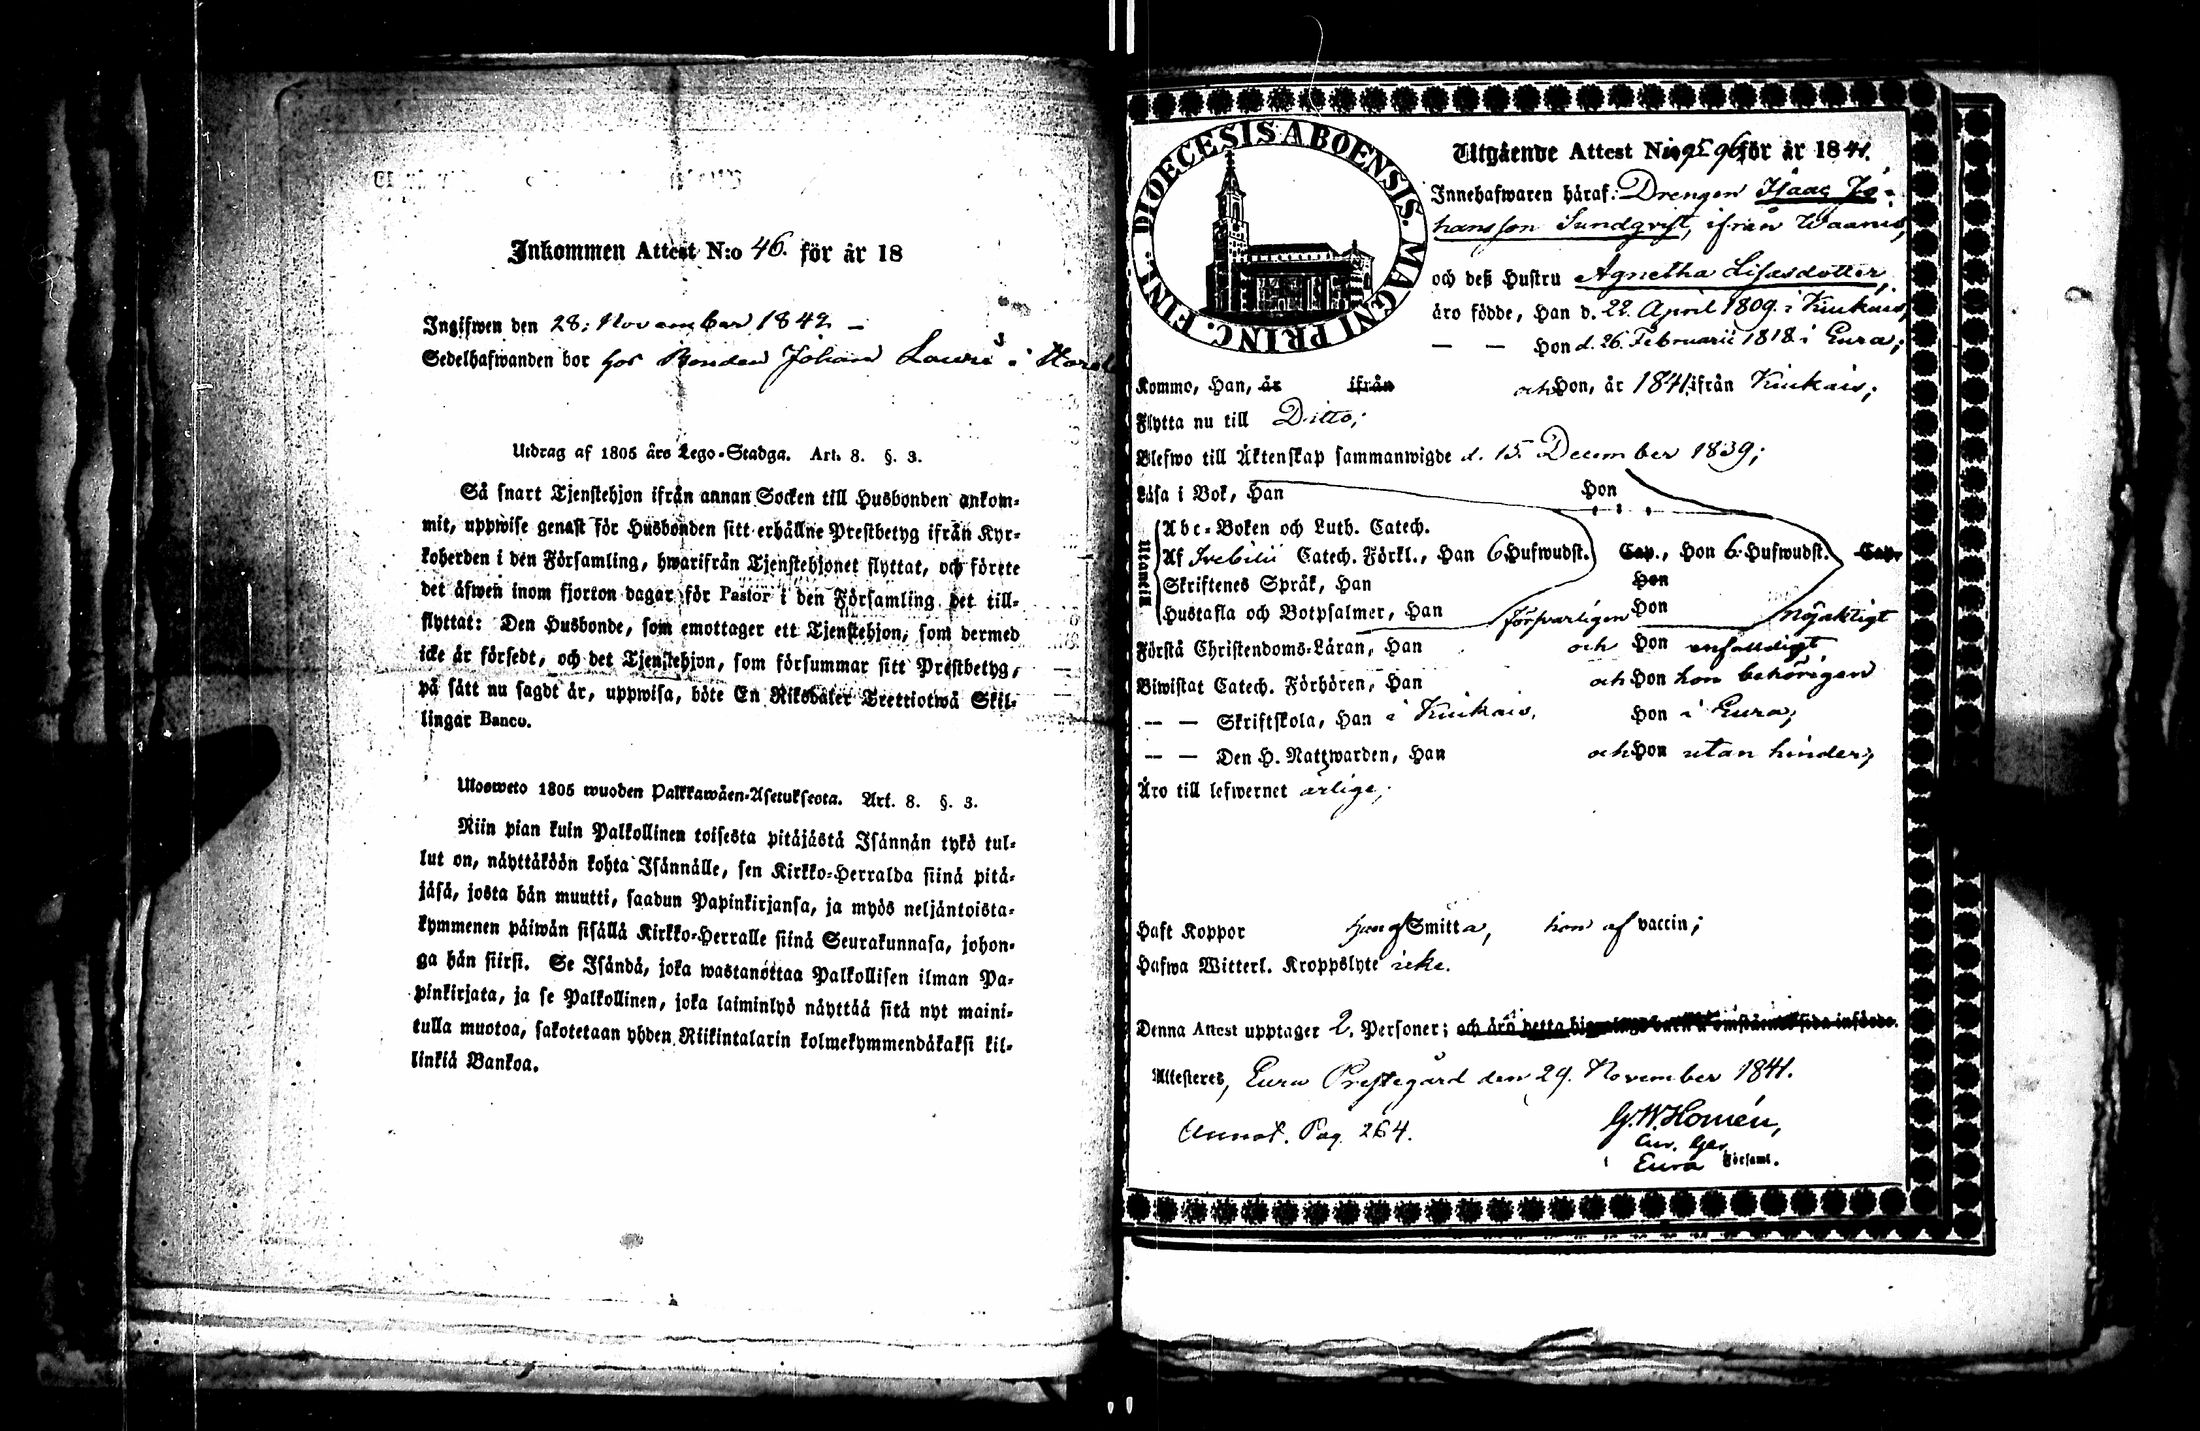 Inkommen Attest N:o 46. för år 18
Ingifwen den 28: November 1842 –
Sedelhafwanden bor hos Bonden Johan Lauri i
Utdrag af 1805 års Lego-Stadga. Art. 8. §. 3.
Så snart Tjenstehjon ifrån annan Socken till Husbonden ankom-
mit, uppwise genast för Husbonden sitt erhållne Prestbetyg ifrån Kyr-
koherden i den Församling, hwarifrån Tjenstehjonet flyttat, och förete
det äfwen inom fjorton dagar för Pastor i den Församling det till-
flyttat: Den Husbonde, som emottager ett Tjenstehjon, som dermed
icke är försedt, och det Tjenstehjon, som försummar sitt Prestbetyg,
på sätt nu sagdt är, uppwisa, böte En Riksdaler Trettiotwå Skil-
lingar Banco.
Ulosweto 1805 wuoden Palkkawäen-Asetuksesta. Art. 8. §. 3.
Niin pian kuin Palkollinen toisesta pitäjästä Isännän tykö tul-
lut on, näyttäköön kohta Isännälle, sen Kirkko-Herralda siinä pitä-
jäsä, josta hän muutti, saadun Papinkirjansa, ja myös neljäntoista-
kymmenen päiwän sisällä Kirkko-Herralle siinä Seurakunnasa, johon-
ga hän siirsi. Se Isändä, joka wastanottaa Palkollisen ilman Pa-
pinkirjata, ja se Palkollinen, joka laiminlyö näyttää sitä nyt maini-
tulla muotoa, sakotetaan yhden Riikintalarin kolmekymmendäkaksi kil-
linkiä Bankoa.
DIOECESIS ABOENSIS. MAGNI PRINC. FINL.
Utgående Attest N:is 95 96 för år 1841.
Innehafwaren häraf: Drengen Isaac Jo-
hansson Sundqvist, ifrån Waanis,
och deß Hustru Agnetha Lisasdotter,
äro födde, Han d. 22. April 1809. i Kiukais,
— — Hon d. 26. Februarii 1818 i Eura;
Kommo, Han, år ifrån och Hon, år 1841 ifrån Kiukais;
Flytta nu till Ditto;
Blefwo till Äktenskap sammanwigde d. 15. December 1839;
Läsa i Bok, Han Hon
Utoweti
Abc-Boken och Luth. Catech.
Af Svebilii Catech. Förkl., Han 6 Hufwudst. Cap., Hon 6. Hufwudst. Cap.
Skriftenes Språk, Han Hon
Hustafla och Botpsalmer, Han försvarligen Hon nöjaktigt
Förstå Christendoms-Läran, Han och Hon enfalldigt
Biwistat Catech. Förhören, Han och Hon hon behörigen
— — Skriftskola, Han i Kiukais, Hon i Eura;
— — Den H. Nattwarden, Han och Hon utan hinder;
Äro till lefwernet ärlige;
Haft Koppor han af Smitta, hon af vaccin;
Hafwa Witterl. Kroppslyte icke.
Denna Attest upptager 2. Personer;
Attesteres, Eura Prestegård den 29. November 1841.
Annot. Pag. 264.
G. W. Homén,
i Eura Församl.